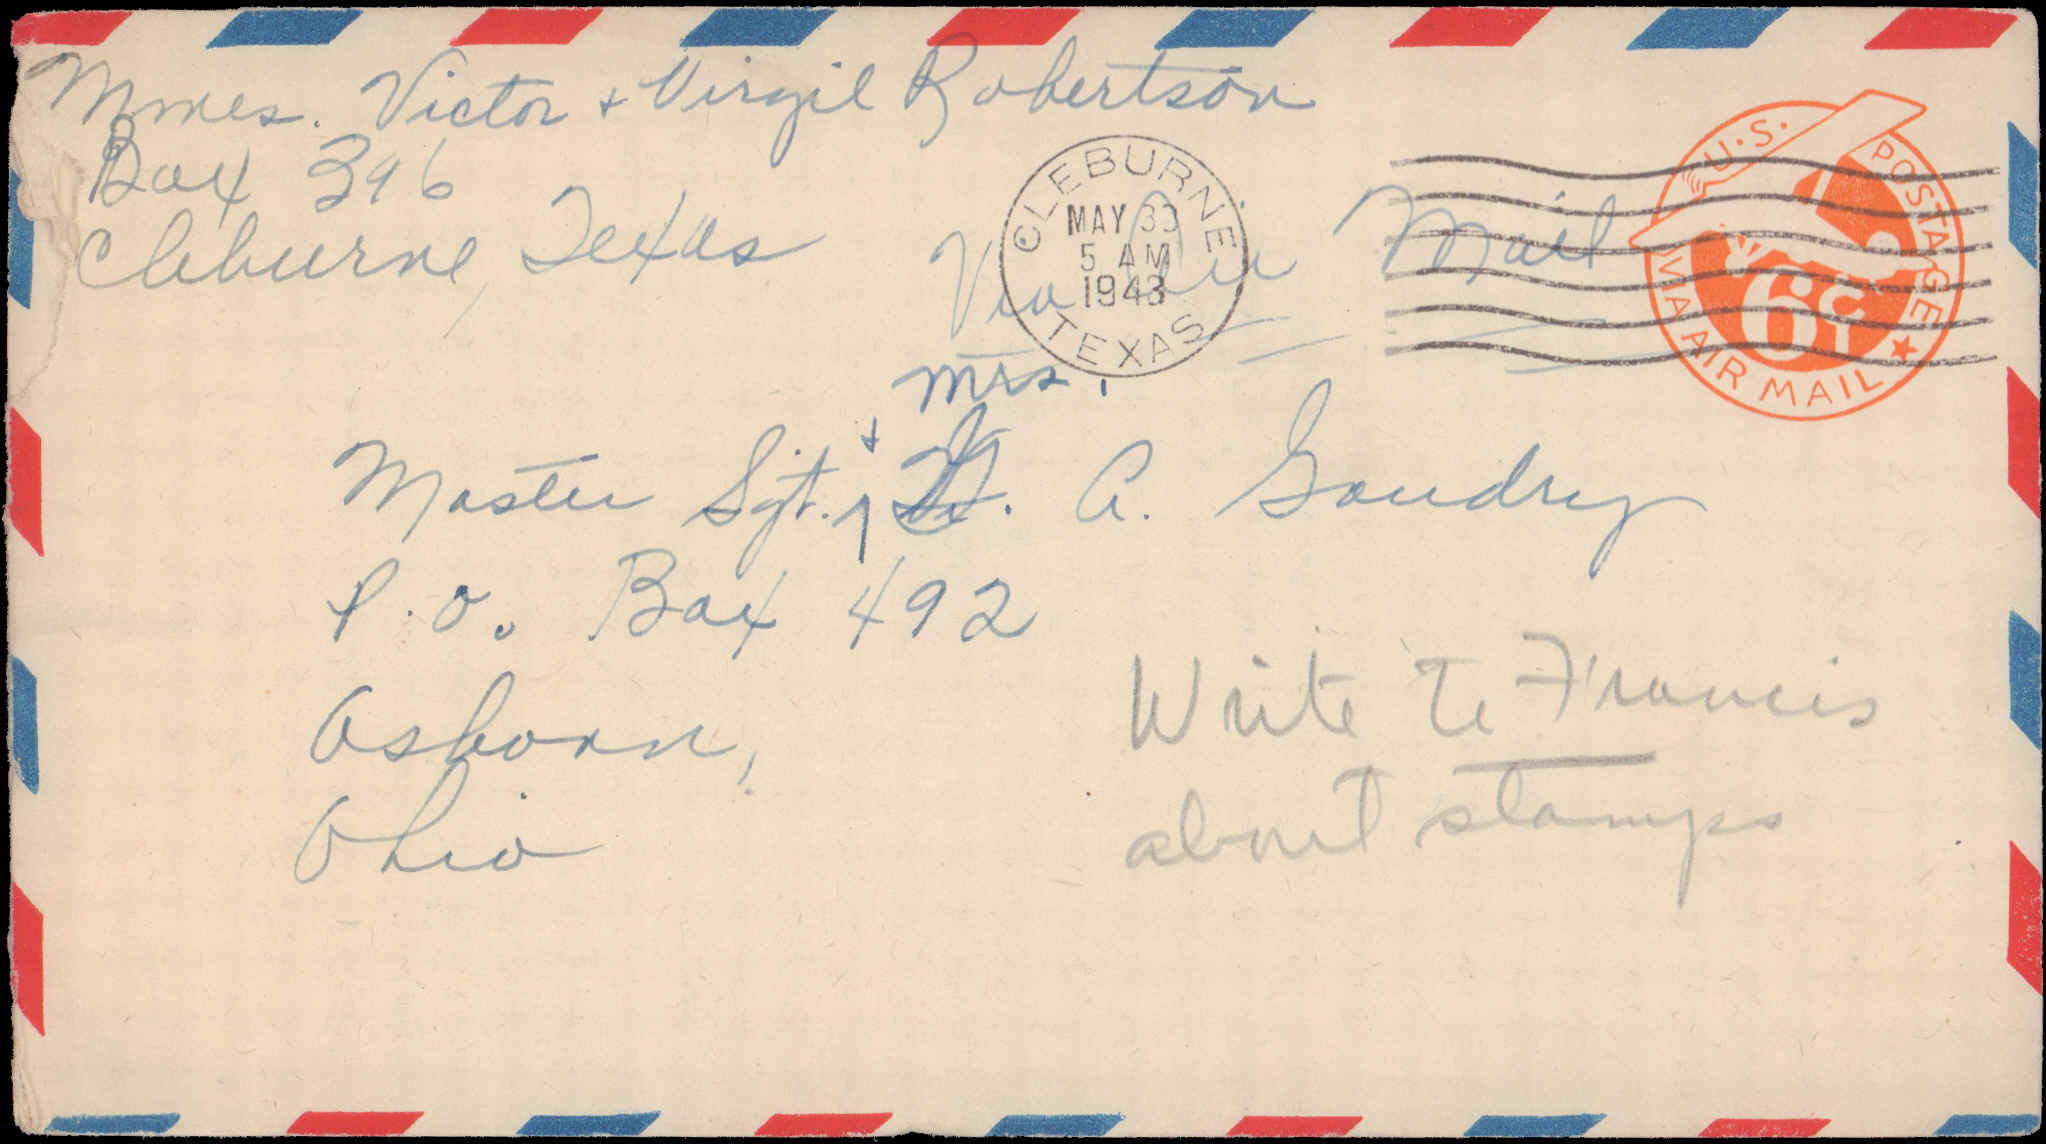 Mmes. Victor + Virgil Robertson
Box 396
Cleburne, Texas
CLEBURNE
MAY 30
5 AM
1943
TEXAS
Via Air Mail
U.S. POSTAGE
6¢
VIA AIR MAIL
Mrs.
Master Sgt. + A. Gaudry
P.O. Box 492
Osborn,
Ohio
Write to Francis
about stamps